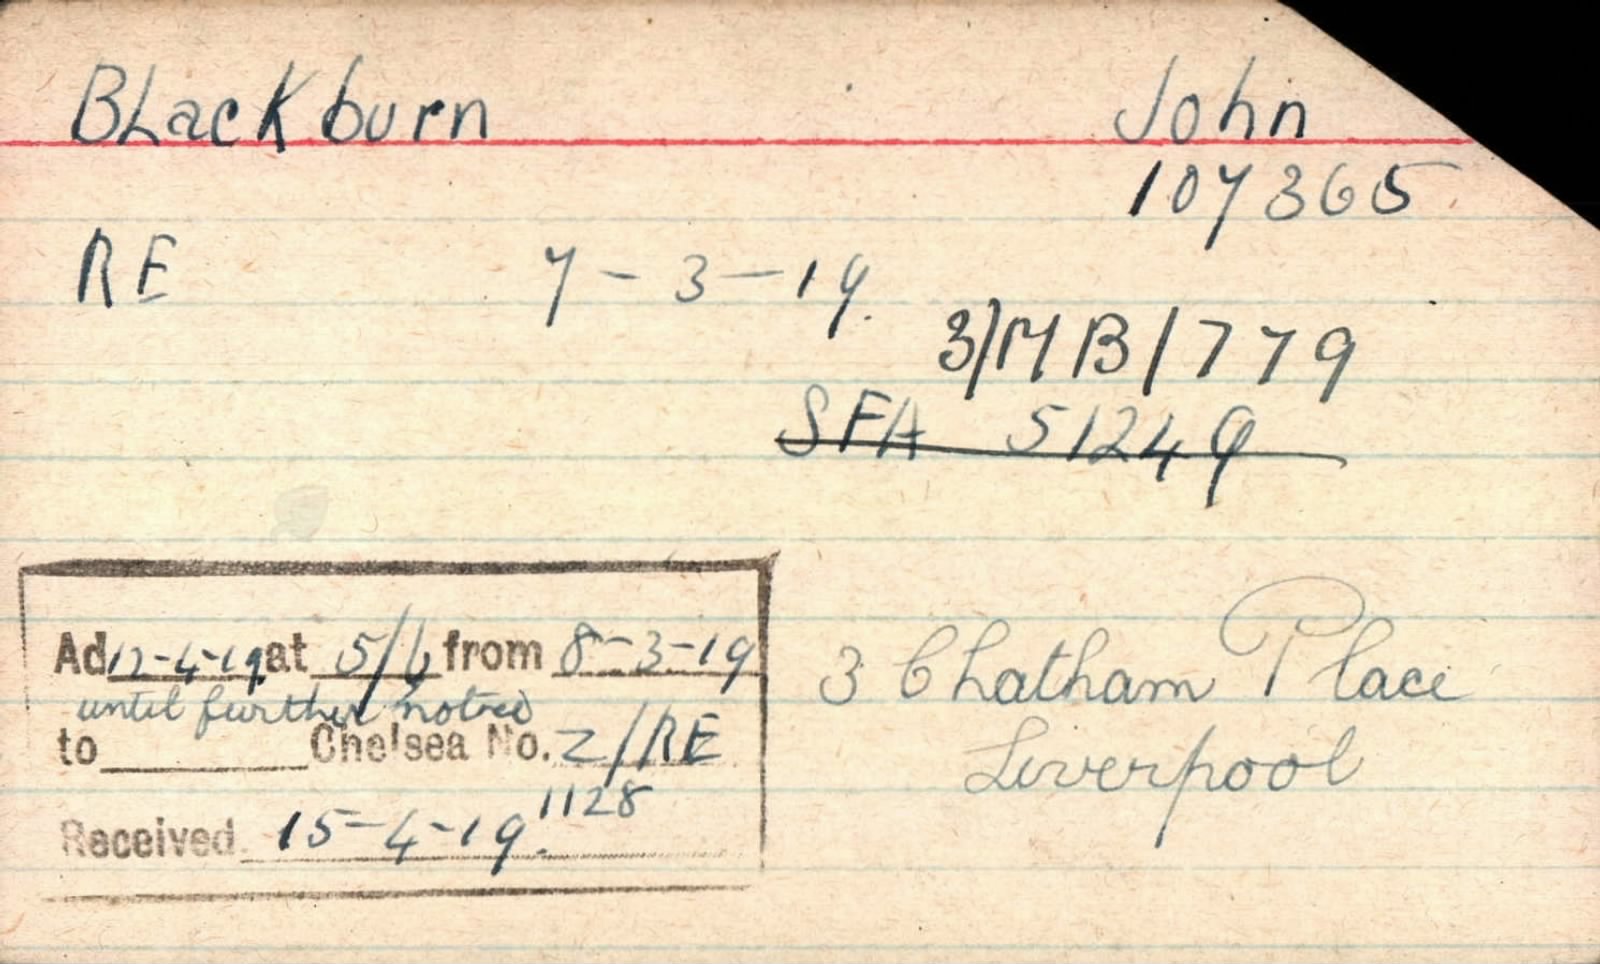 Blackburn John
107365
RE 7-3-19.
3/MB/779
SFA 51249
Ad 12-4-19 at 5/6 from 8-3-19
until further notice
to Chelsea No. Z/RE
1128
Received 15-4-19.
3 Chatham Place
Liverpool